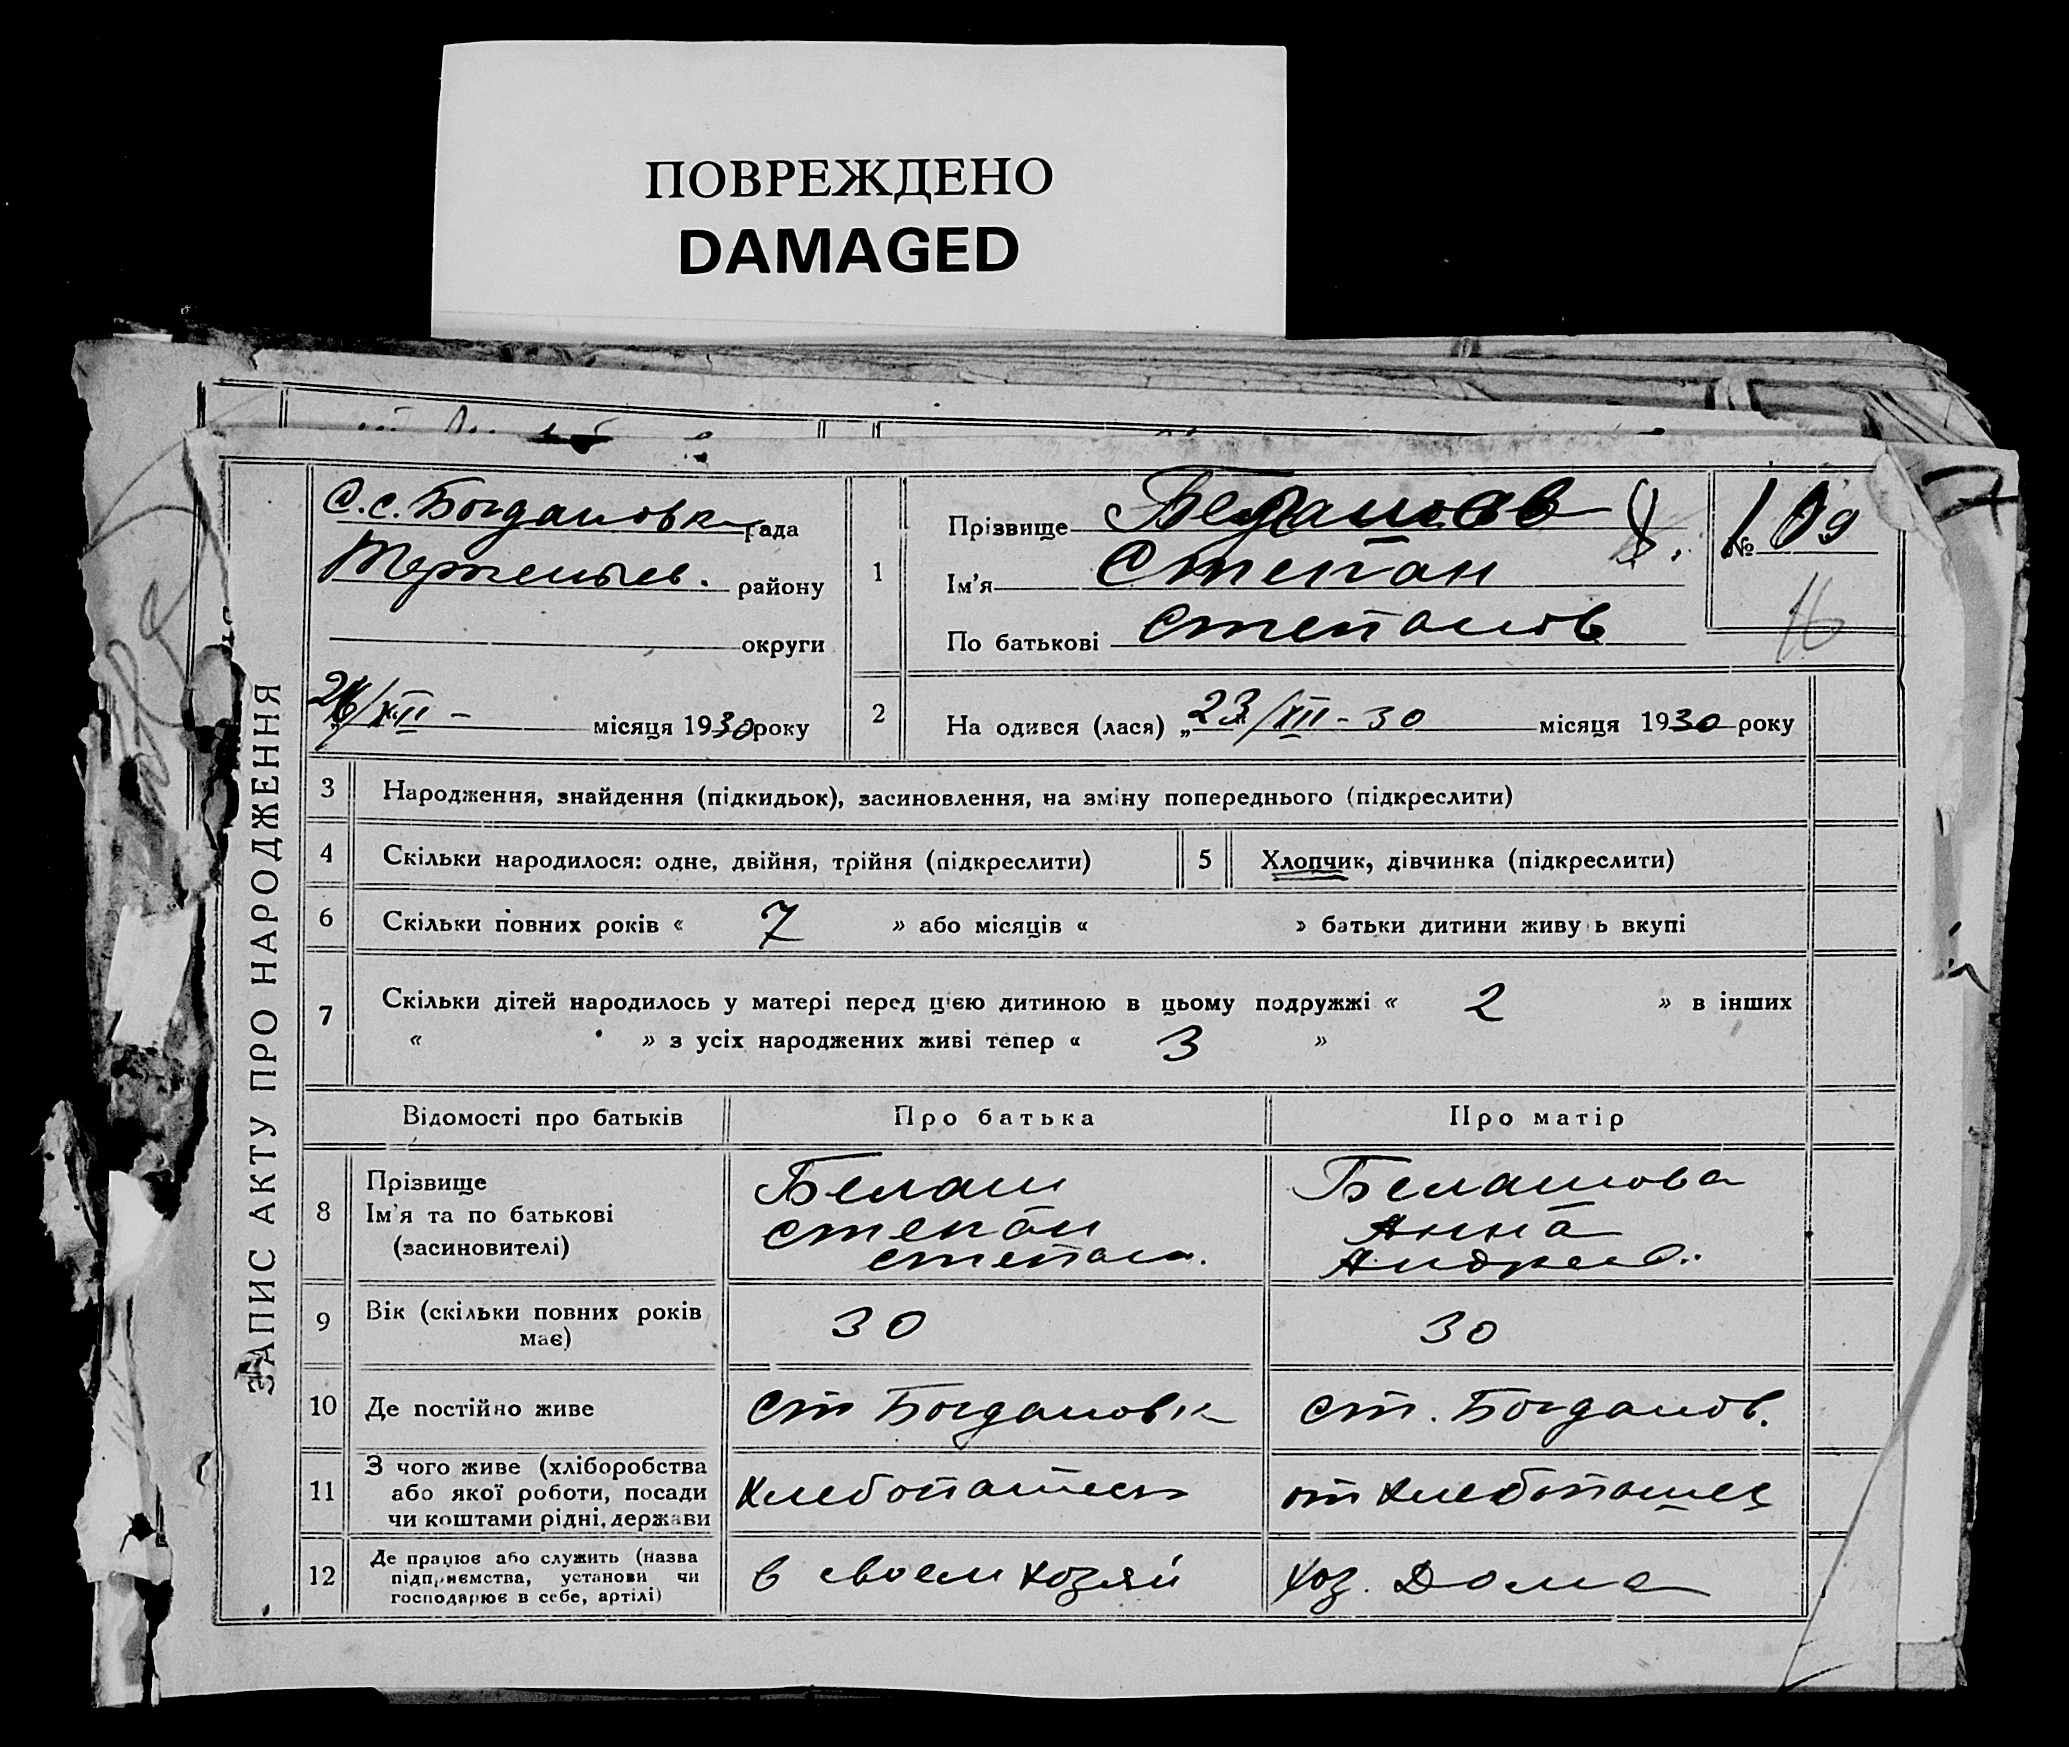 ПОВРЕЖДЕНО
DAMAGED
ЗАПИС АКТУ ПРО НАРОДЖЕННЯ
С.с. Богдановка рада
району
округи
26/XII - місяця 1930 року
1
Прізвище
Ім'я Степан
По батькові Степанов
№ 109
16
2
На одився (лася) „ 23/XII - 30 місяця 1930 року
3 Народження, знайдення (підкидьок), засиновлення, на зміну попереднього (підкреслити)
4 Скільки народилося: одне, двійня, трійня (підкреслити)
5 Хлопчик, дівчинка (підкреслити)
6 Скільки повних років « 7 » або місяців « » батьки дитини живу ь вкупі
7 Скільки дітей народилось у матері перед цією дитиною в цьому подружжі « 2 » в інших
« » з усіх народжених живі тепер « 3 »
Відомості про батьків Про батька Про матір
8 Прізвище
Ім'я та по батькові
(засиновителі)
Белаш
Степан
Степан.
Белашова
Анна
Андреев.
9 Вік (скільки повних років
має)
30
30
10 Де постійно живе
Ст Богдановк
Ст. Богданов.
11 З чого живе (хліборобства
або якої роботи, посади
чи коштами рідні, держави
Хлебопашец
от хлебопашец
12 Де працює або служить (назва
підприємства, установи чи
господарює в себе, артілі)
в своем хозяй
хоз. Дома